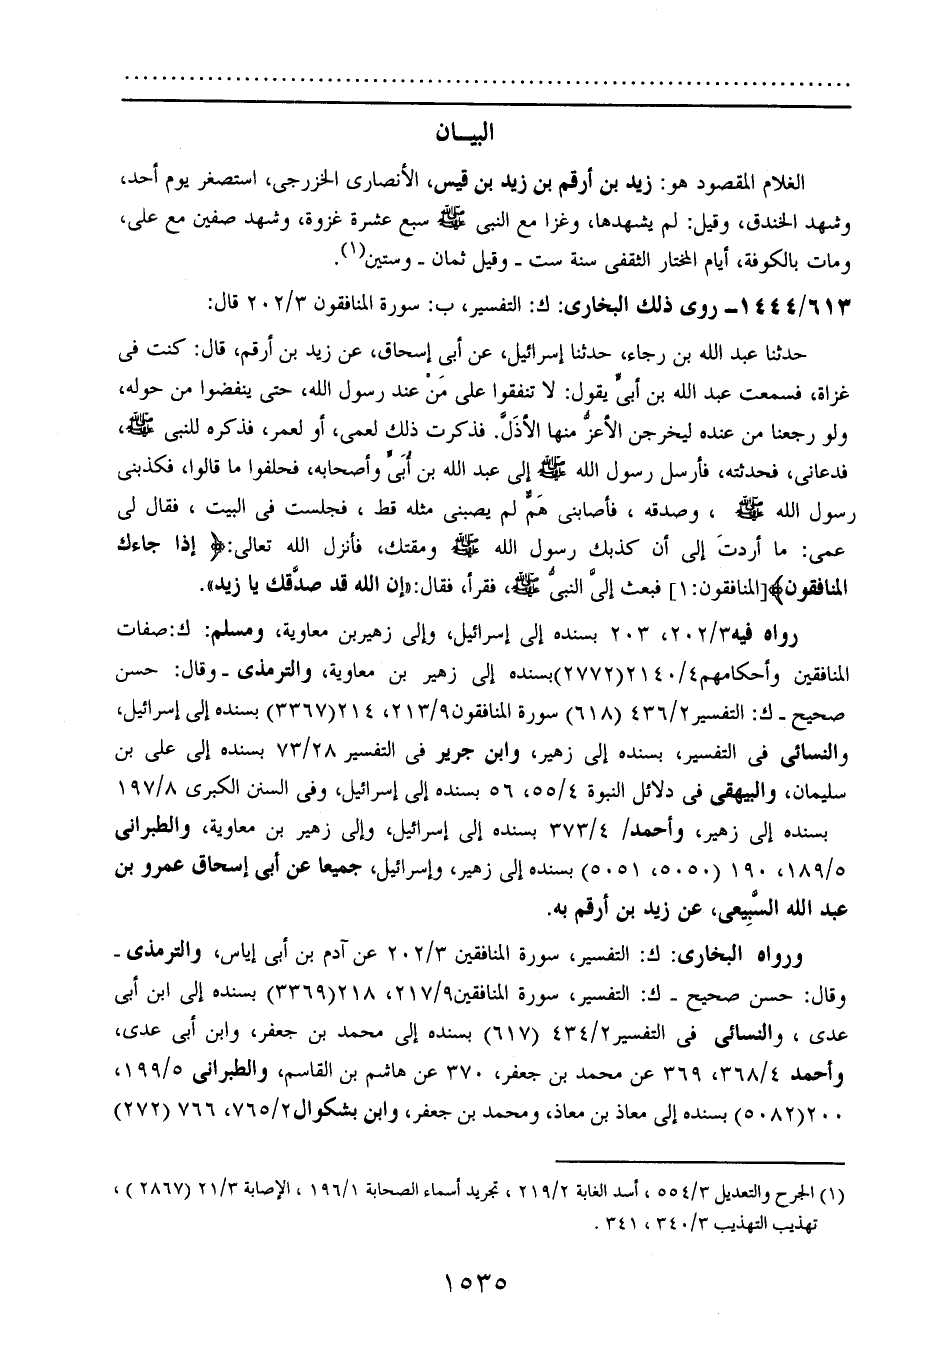 البيـــان
الغلام المقصود هو: زيد بن أرقم بن زيد بن قيس، الأنصارى الخزرجى، استصغر يوم أحد،
وشهد الخندق، وقيل: لم يشهدها، وغزا مع النبى ﷺ سبع عشرة غزوة، وشهد صفين مع على،
ومات بالكوفة، أيام المختار الثقفى سنة ست ـ وقيل ثمان ـ وستين(١).
١٤٤٤/٦١٣ـ روى ذلك البخارى: ك: التفسير، ب: سورة المنافقون ٢٠٢/٣ قال:
حدثنا عبد الله بن رجاء، حدثنا إسرائيل، عن أبى إسحاق، عن زيد بن أرقم، قال: كنت فى
غزاة، فسمعت عبد الله بن أبىٍّ يقول: لا تنفقوا على مَنْ عند رسول الله، حتى ينفضوا من حوله،
ولو رجعنا من عنده ليخرجن الأعزُّ منها الأذَلَّ. فذكرت ذلك لعمى، أو لعمر، فذكره للنبى ﷺ،
فدعانى، فحدثته، فأرسل رسول الله ﷺ إلى عبد الله بن أُبَىٍّ وأصحابه، فحلفوا ما قالوا، فكذبنى
رسول الله ﷺ ، وصدقه ، فأصابنى هَمٌّ لم يصبنى مثله قط ، فجلست فى البيت ، فقال لى
عمى: ما أردتَ إلى أن كذبك رسول الله ﷺ ومقتك، فأنزل الله تعالى:﴿ إذا جاءك
المنافقون﴾[المنافقون:١] فبعث إلىَّ النبىُّ ﷺ، فقرأ، فقال:«إن الله قد صدَّقك يا زيد».
رواه فيه٢٠٢/٣، ٢٠٣ بسنده إلى إسرائيل، وإلى زهيربن معاوية، ومسلم: ك:صفات
المنافقين وأحكامهم٢١٤٠/٤(٢٧٧٢)بسنده إلى زهير بن معاوية، والترمذى ـ وقال: حسن
صحيح ـ ك: التفسير٤٣٦/٢ (٦١٨) سورة المنافقون٢١٣/٩، ٢١٤(٣٣٦٧) بسنده إلى إسرائيل،
والنسائى فى التفسير، بسنده إلى زهير، وابن جرير فى التفسير ٧٣/٢٨ بسنده إلى على بن
سليمان، والبيهقى فى دلائل النبوة ٥٥/٤، ٥٦ بسنده إلى إسرائيل، وفى السنن الكبرى ١٩٧/٨
بسنده إلى زهير، وأحمد/ ٣٧٣/٤ بسنده إلى إسرائيل، وإلى زهير بن معاوية، والطبرانى
١٨٩/٥، ١٩٠ (٥٠٥٠، ٥٠٥١) بسنده إلى زهير، وإسرائيل، جميعا عن أبى إسحاق عمرو بن
عبد الله السَّبِيعى، عن زيد بن أرقم به.
ورواه البخارى: ك: التفسير، سورة المنافقين ٢٠٢/٣ عن آدم بن أبى إياس، والترمذى ـ
وقال: حسن صحيح ـ ك: التفسير، سورة المنافقين٢١٧/٩، ٢١٨(٣٣٦٩) بسنده إلى ابن أبى
عدى ، والنسائى فى التفسير٤٣٤/٢ (٦١٧) بسنده إلى محمد بن جعفر، وابن أبى عدى،
وأحمد ٣٦٨/٤، ٣٦٩ عن محمد بن جعفر، ٣٧٠ عن هاشم بن القاسم، والطبرانى ١٩٩/٥،
٢٠٠(٥٠٨٢) بسنده إلى معاذ بن معاذ، ومحمد بن جعفر، وابن بشكوال٧٦٥/٢، ٧٦٦ (٢٧٢)
(١) الجرح والتعديل ٥٥٤/٣ ، أسد الغابة ٢١٩/٢ ، تجريد أسماء الصحابة ١٩٦/١ ، الإصابة ٢١/٣ (٢٨٦٧) ،
تهذيب التهذيب ٣٤٠/٣ ، ٣٤١ .
١٥٣٥